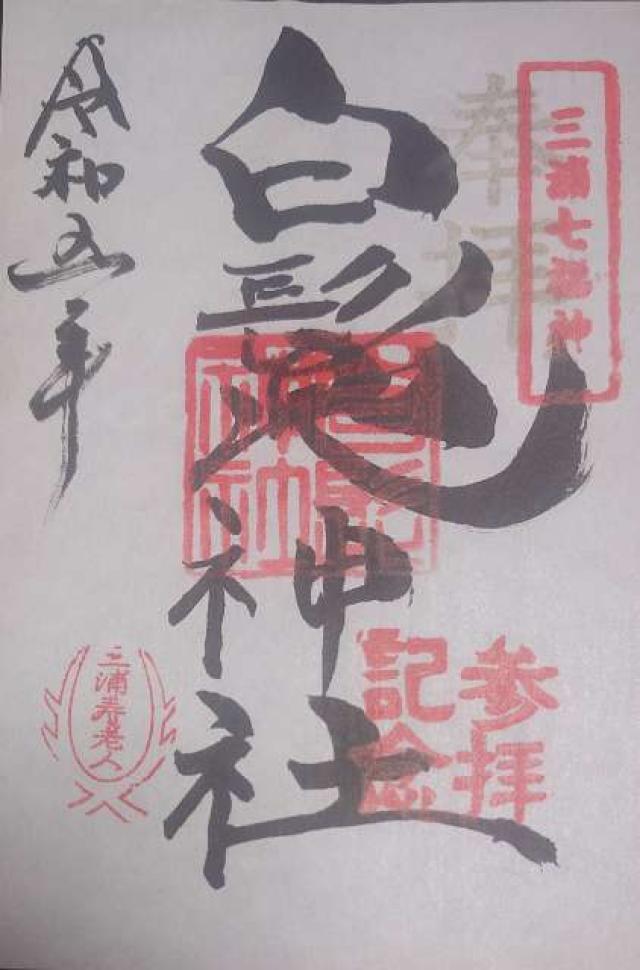 奉拝
三浦七福神
白髭神社
白髭神社
参拝記念
令和五年
三浦寿老人